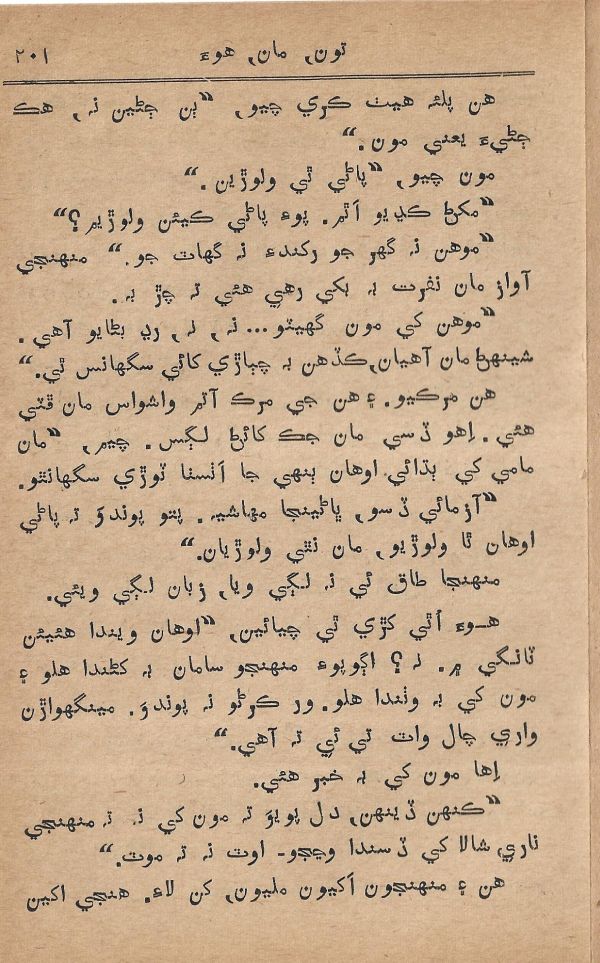 تون, مان, هوءَ ٢٠١
هن پلئه هيٺ ڪري چيو, ”ٻن ڄڻين نہ, هڪ
ڄڻيءَ يعني مون.“
مون چيو, ”پاڻي ٿي ولوڙين.“
”مکڻ ڪڍيو اٿم. پوءِ پاڻي ڪيئن ولوڙيم؟“
”موهن نہ گهر جو رکندءِ نہ گهاٽ جو.“ منهنجي
آواز مان نفرت بہ بکي رهي هئي تہ چڙ بہ.
”موهن کي مون گهيٽو...نہ, نہ, رڍ بڻايو آهي.
شينهڻ مان آهيان,ڪڏهن بہ چٻاڙي کائي سگهانس ٿي.“
هن مرڪيو. ۽ هن جي مرڪ آتم وشواس مان ڦٽي
هئي. اِهو ڏسي مان جڪ کائڻ لڳس. چيم, ”مان
مامي کي ٻڌائي اوهان ٻنهي جا اَٺسٺا ٽوڙي سگهانٿو.
”آزمائي ڏسو, ڀاڻيجا مهاشيہ. پتو پوندوَ تہ پاڻي
اوهان ٿا ولوڙيو, مان نٿي ولوڙيان.“
منهنجا طاق ئي نہ لڳي ويا, زبان لڳي ويئي.
هـوءَ اُٿي کڙي ٿي چيائين, ”اوهان ويندا هئيئن
ٽانگي ۾. نہ؟ اڳوپوءِ منهنجو سامان بہ کڻندا هلو ۽
مون کي بہ وٺندا هلو. ور ڪرڻو نہ پوندوَ. مينگهواڙن
واري چال واٽ تي ئي تہ آهي.“
اِها مون کي بہ خبر هئي.
”ڪنهن ڏينهن, دل پويوَ تہ مون کي نہ تہ منهنجي
ناري شالا کي ڏسندا وڃجو- اوت نہ تہ موت.“
هن ۽ منهنجون اَکيون مليون, کن لاءِ. هنجي اکين